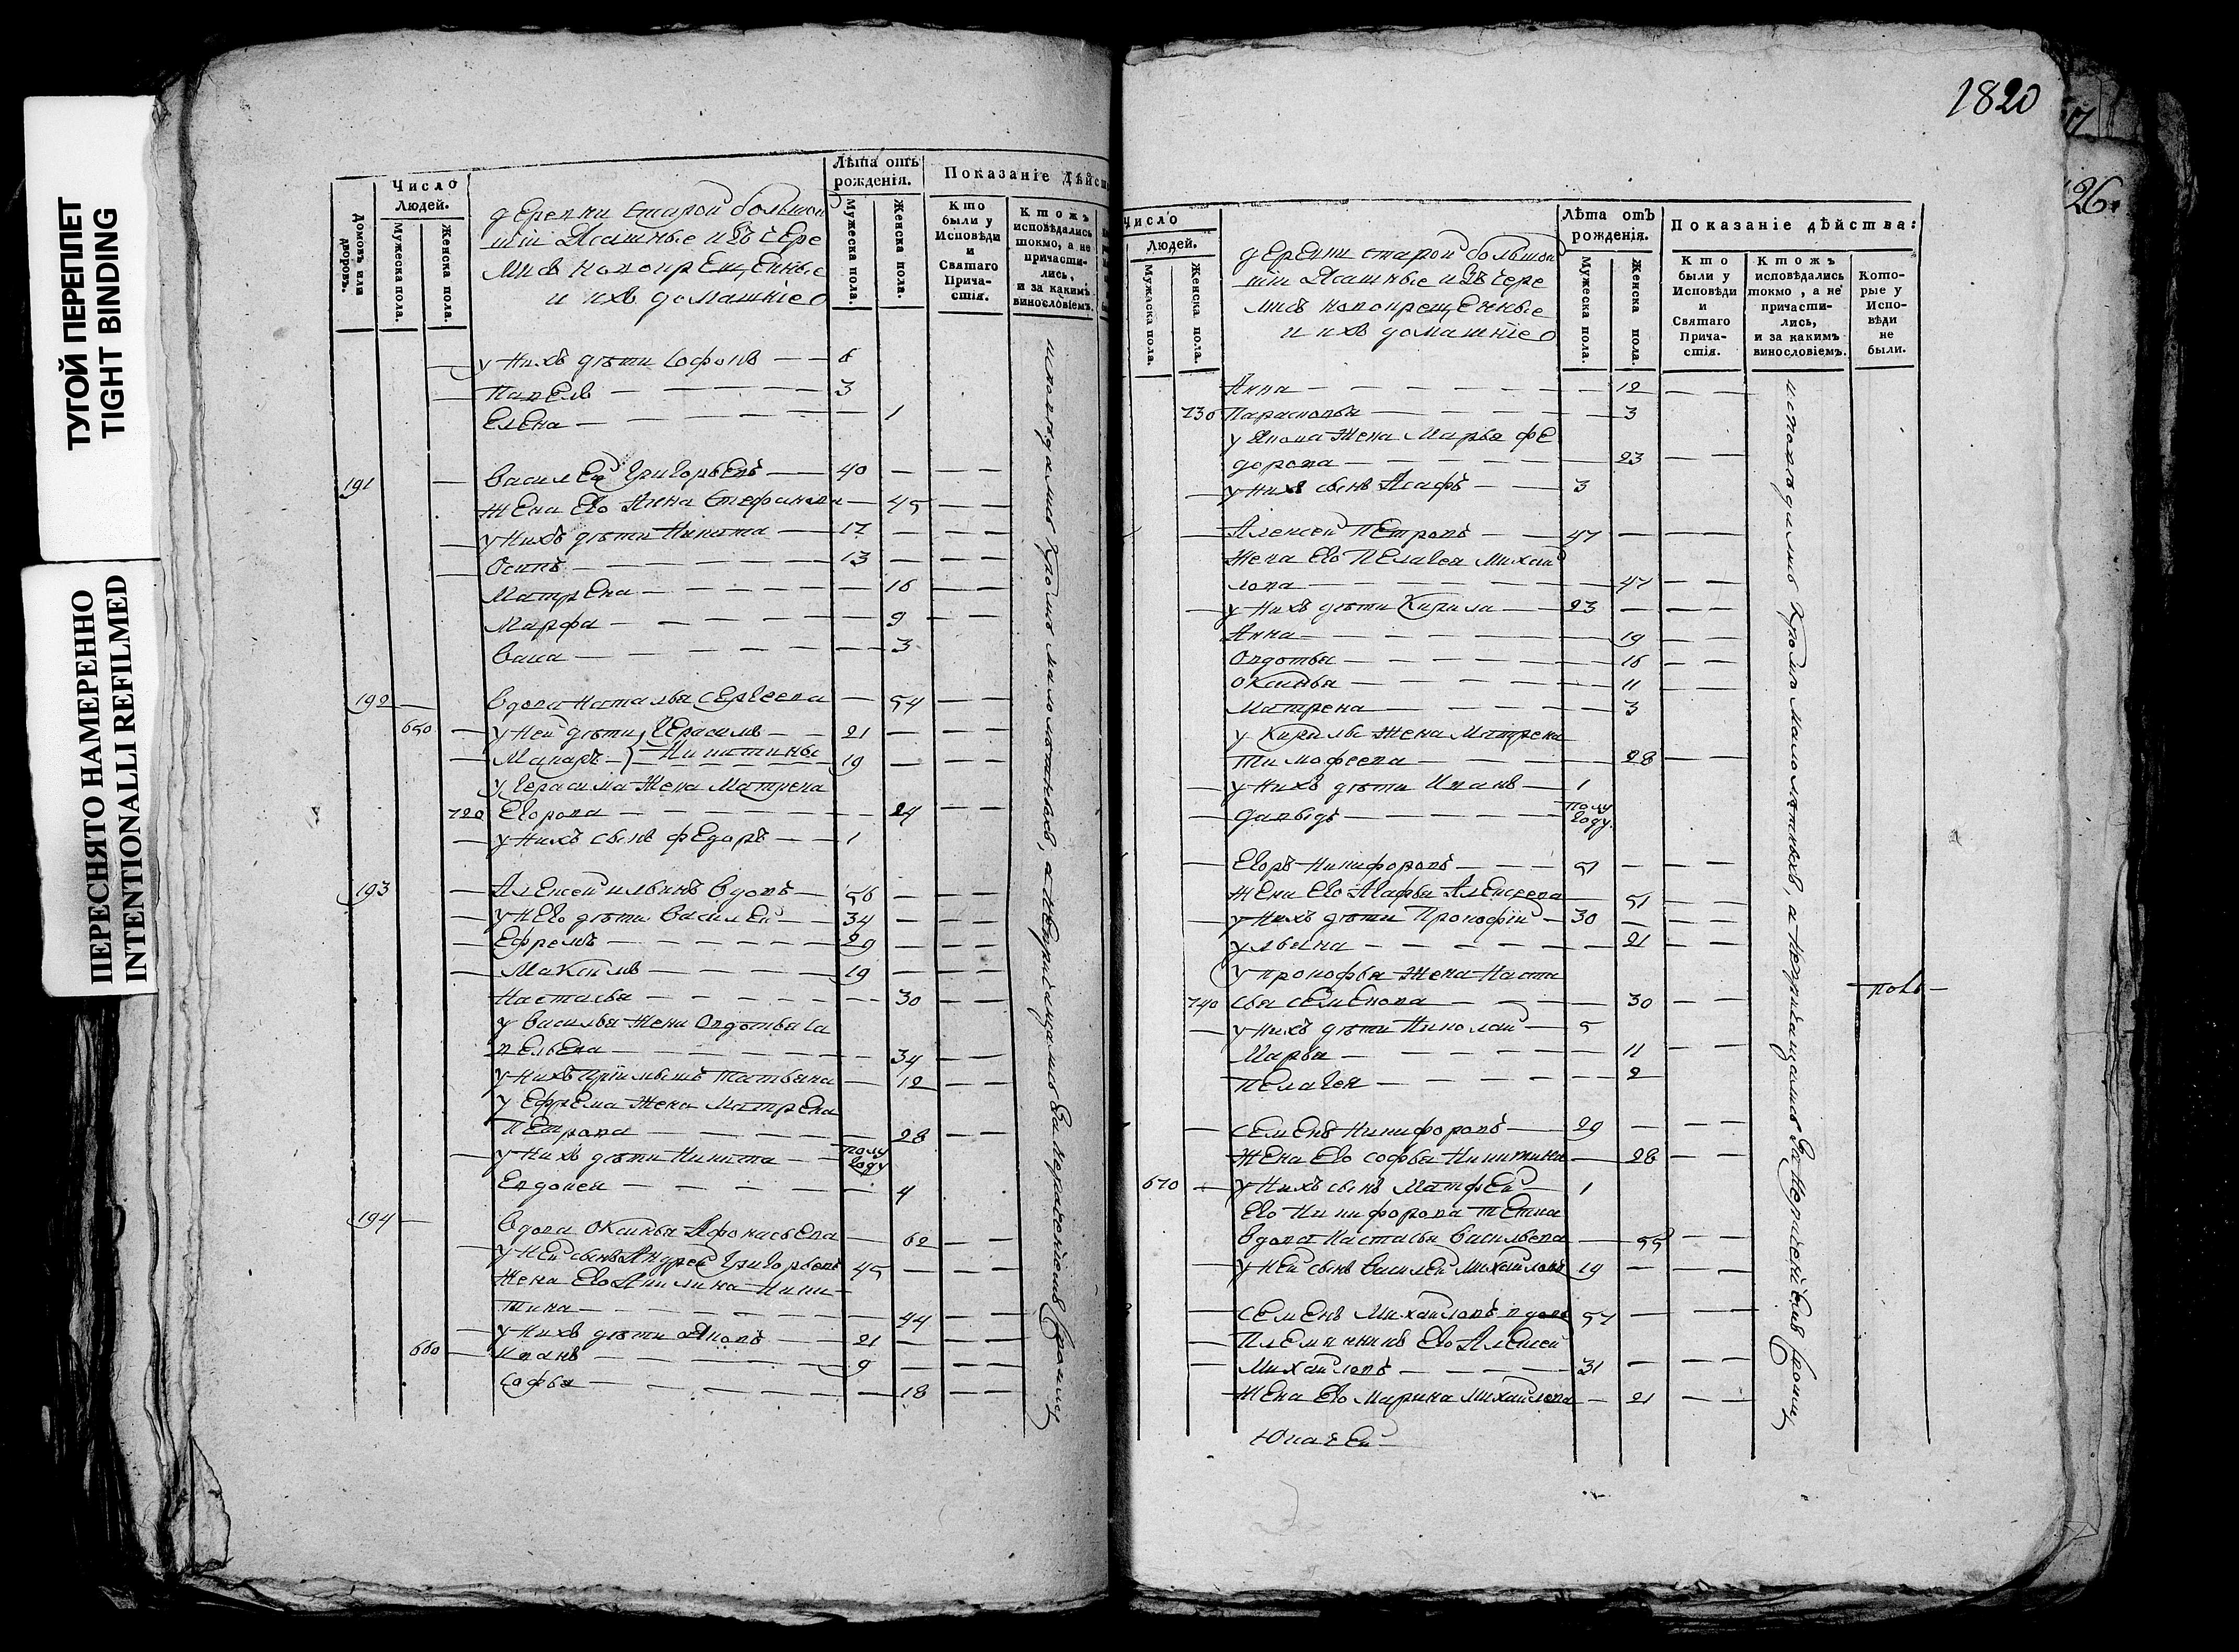 ТУГОЙ ПЕРЕПЛЕТ
TIGHT BINDING
ПЕРЕСНЯТО НАМЕРЕННО
INTENTIONALLI REFILMED
Домовъ или дворовъ.
Число Людей.
Мужеска пола.
Женска пола.
деревни старой большой
шіи Ясашные изъ чере
мисъ новокрещенные
и ихъ домашніе
Лѣта отъ рожденія.
Мужеска пола.
Женска пола.
Показаніе Дѣйст
Кто были у Исповѣди и Святаго Причастія.
Ктожъ исповѣдались токмо, а не причастились, и за какимъ винословіемъ.
у нихъ дѣти Софонъ 6
Павелъ 3
Елена 1
191 Василей Григорьевъ 40
жена Его Анна Стефанова 45
у нихъ дѣти Никита 17
Осипъ 13
Матрена 16
Марфа 9
3
192 вдова Наталья Сергеева 54
650 у ней дѣти Герасимъ 21
Макаръ Никитины 19
у Герасима жена Матрена
720 Егорова 24
у нихъ сынъ Федоръ 1
193 Алексей Ильинъ вдовъ 56
у нЕго дѣти Василей 34
Ефремъ 29
Максимъ 19
Настасья 30
у Василья жена Овдотья Са
вельева 34
у нихъ пріимышъ Татьяна 12
у Ефрема жена Матрена
Петрова 28
у нихъ дѣти Никита полу году
Евдокея 4
194 вдова Оксинья Афонасьева 62
у ней сынъ Андрей Григорьевъ 45
жена Его Акилина Ники
тина 44
у нихъ дѣти Яковъ 21
660 Иванъ 9
Софья 18
исповѣдались кромѣ малолѣтныхъ, а непричащались за нераченіемъ
1820
17
26
Число Людей.
Мужеска пола.
Женска пола.
деревни старой большой
шіи Ясашные изъ чере
мисъ новокрещенные
и ихъ домашніе
Лѣта отъ рожденія.
Мужеска пола.
Женска пола.
Показаніе дѣйства:
Кто были у Исповѣди и Святаго Причастія.
Ктожъ исповѣдались токмо, а не причастились, и за какимъ винословіемъ.
Которые у Исповѣди не были.
Анна 12
730 Парасковья 3
у Якова жена Марья Фе
дорова 23
у нихъ сынъ Асафъ 3
Алексей Петровъ 47
жена Его Пелагея Михай
лова 47
у нихъ дѣти Кирила 23
Анна 19
Овдотья 16
Оксинья 11
Матрена 3
у Кирилы жена Матрена
Тимофеева 28
у нихъ дѣти Иванъ 1
Давыдъ полу году
Егоръ Никифоровъ 51
жена Его Агафья Алексеева 51
у нихъ дѣти Прокофій 30
Ульяна 21
у Прокофья жена Наста
740 сья Семенова 30
у нихъ дѣти Николай 5
Марья 11
Пелагея 2
Семенъ Никифоровъ 29
жена Его Софья Никитина 28
670 у нихъ сынъ Матфей 1
Его Никифорова тетка
вдова Настасья Васильева 55
у ней сынъ Василей Михайловъ 19
Семенъ Михайловъ вдовъ 57
племянникъ Его Алексей
Михайловъ 31
жена Его Марина Михайлова 21
исповѣдались кромѣ малолѣтныхъ, а непричащались за нераченіемъ